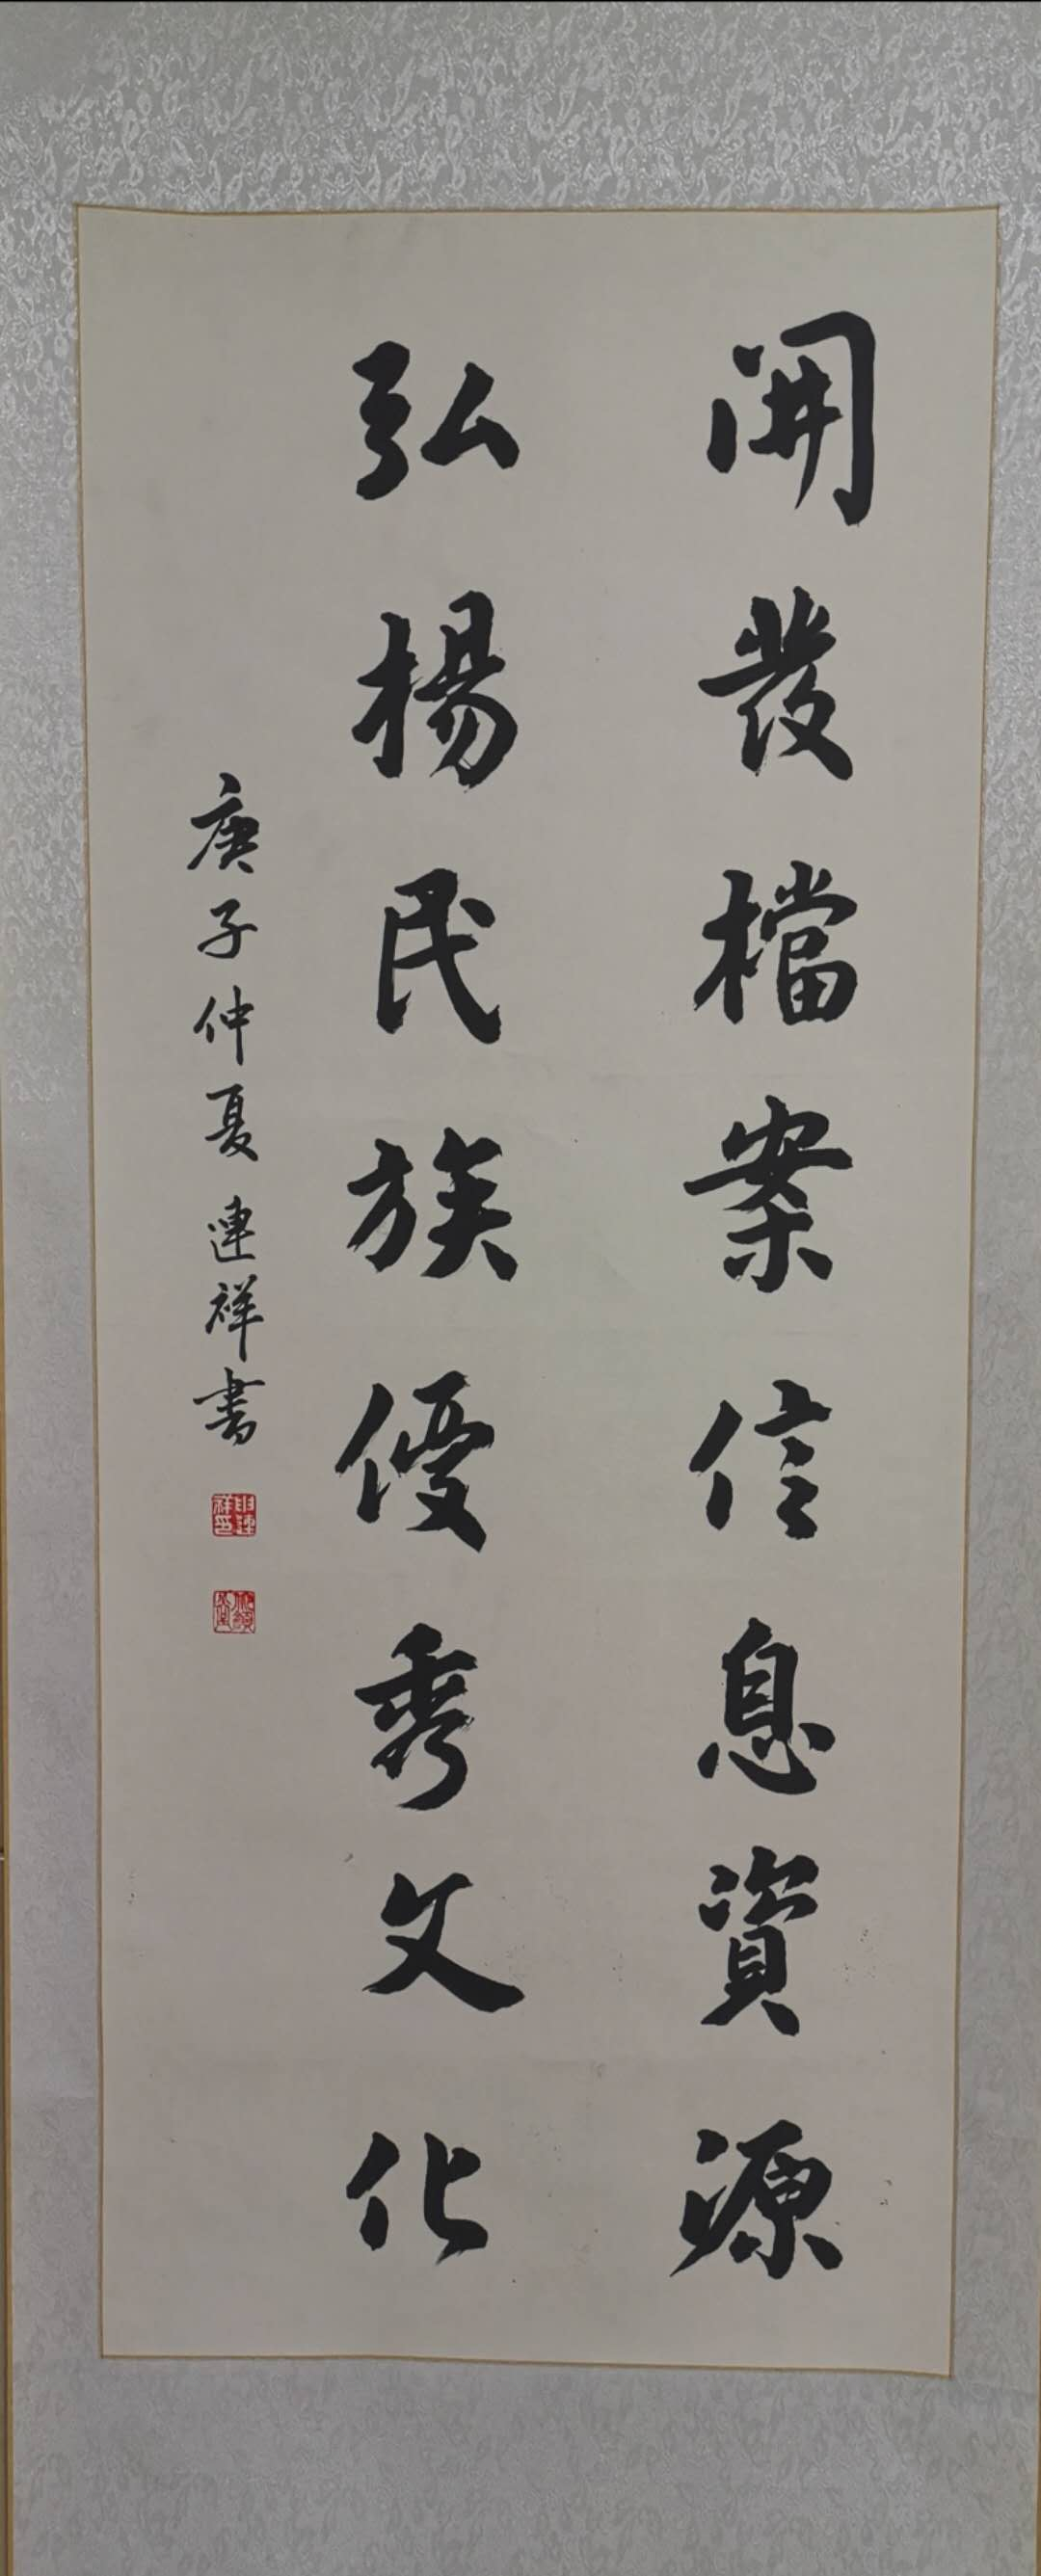 開發檔案信息資源
弘揚民族優秀文化
庚子仲夏 連祥書